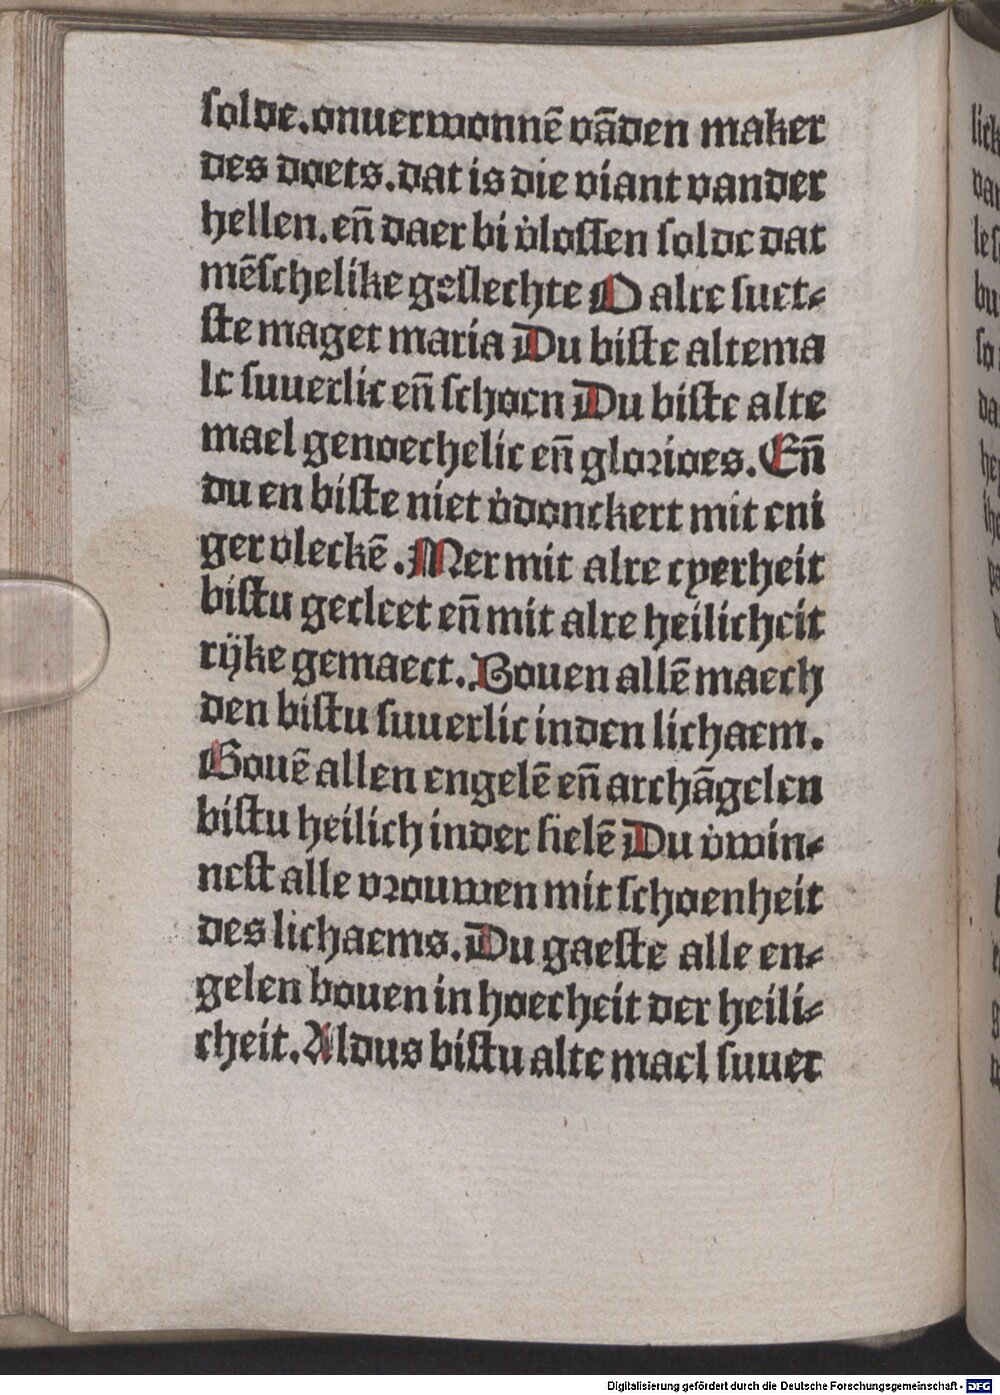 solde.onuerwonnē vāden maker
des doets.dat is die viant vander
hellen.en̄ daer bi v̓lossen solde dat
mēschelike geslechte O alre suet⸗
ste maget maria Du biste altema
le suuerlic en̄ schoen Du biste alte
mael genoechelic en̄ glorioes. En̄
du en biste niet v̓donckert mit eni
ger vleckē. Mer mit alre cyerheit
bistu gecleet en̄ mit alre heilicheit
rijke gemaect. Bouen allē maech
den bistu suuerlic inden lichaem.
Bouē allen engelē en̄ archāgelen
bistu heilich inder sielē Du v̓win⸗
nest alle vrouwen mit schoenheit
des lichaems. Du gaeste alle en⸗
gelen bouen in hoecheit der heili⸗
cheit. Aldus bistu alte mael suuer
Digitalisierung gefördert durch die Deutsche Forschungsgemeinschaft - DFG